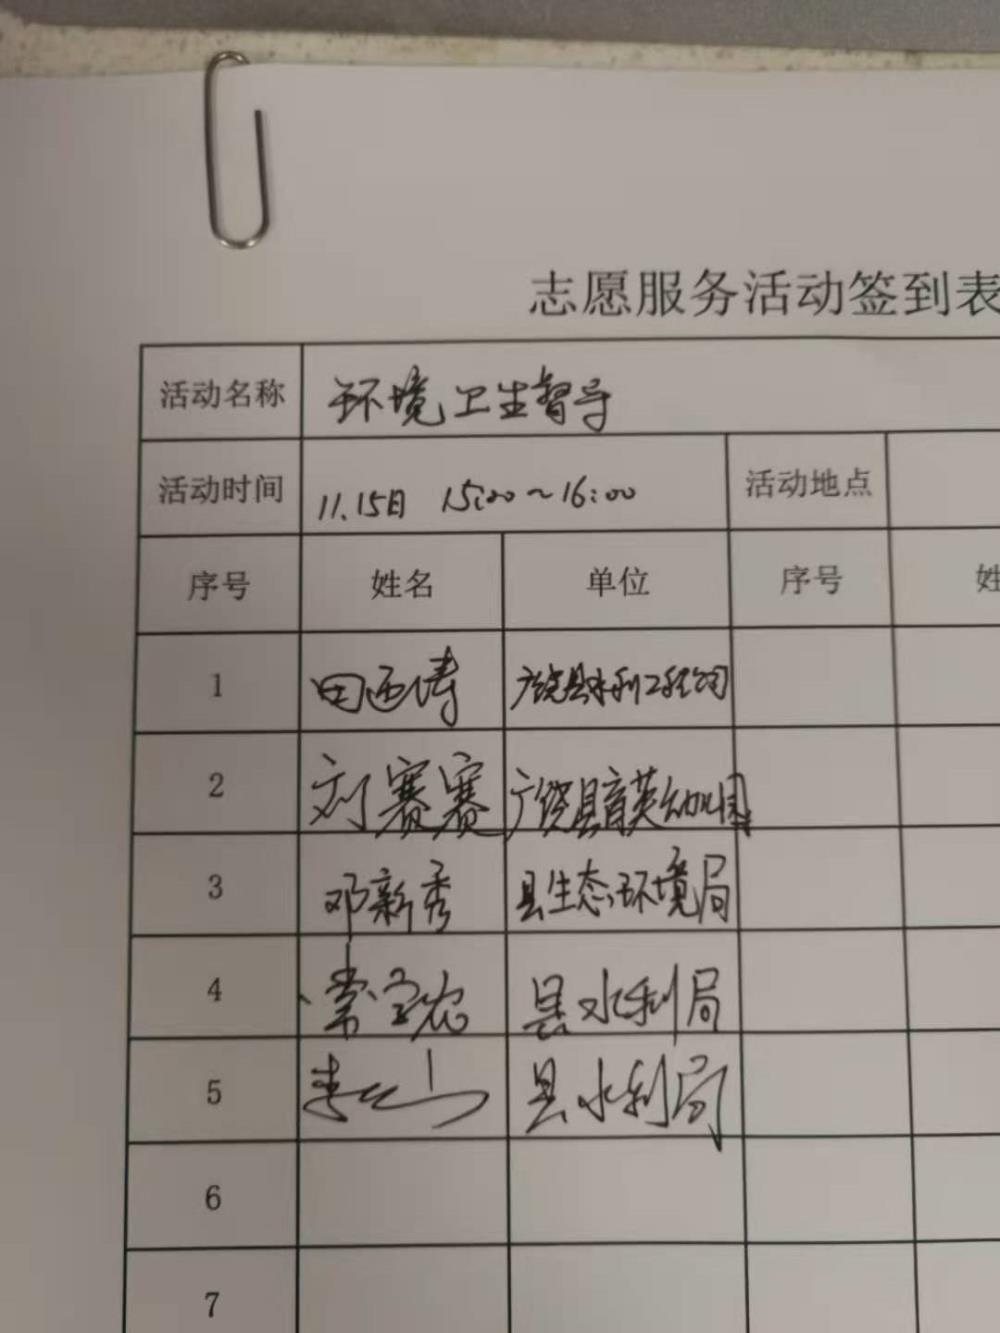 志愿服务活动签到表
活动名称 环境卫生督导
活动时间 11.15日 15:00~16:00 活动地点
序号 姓名 单位 序号 姓
1 田西涛 广饶县水利工程公司
2 刘赛赛 广饶县育英幼儿园
3 邓新秀 县生态环境局
4 常 县水利局
5 李 县水利局
6
7